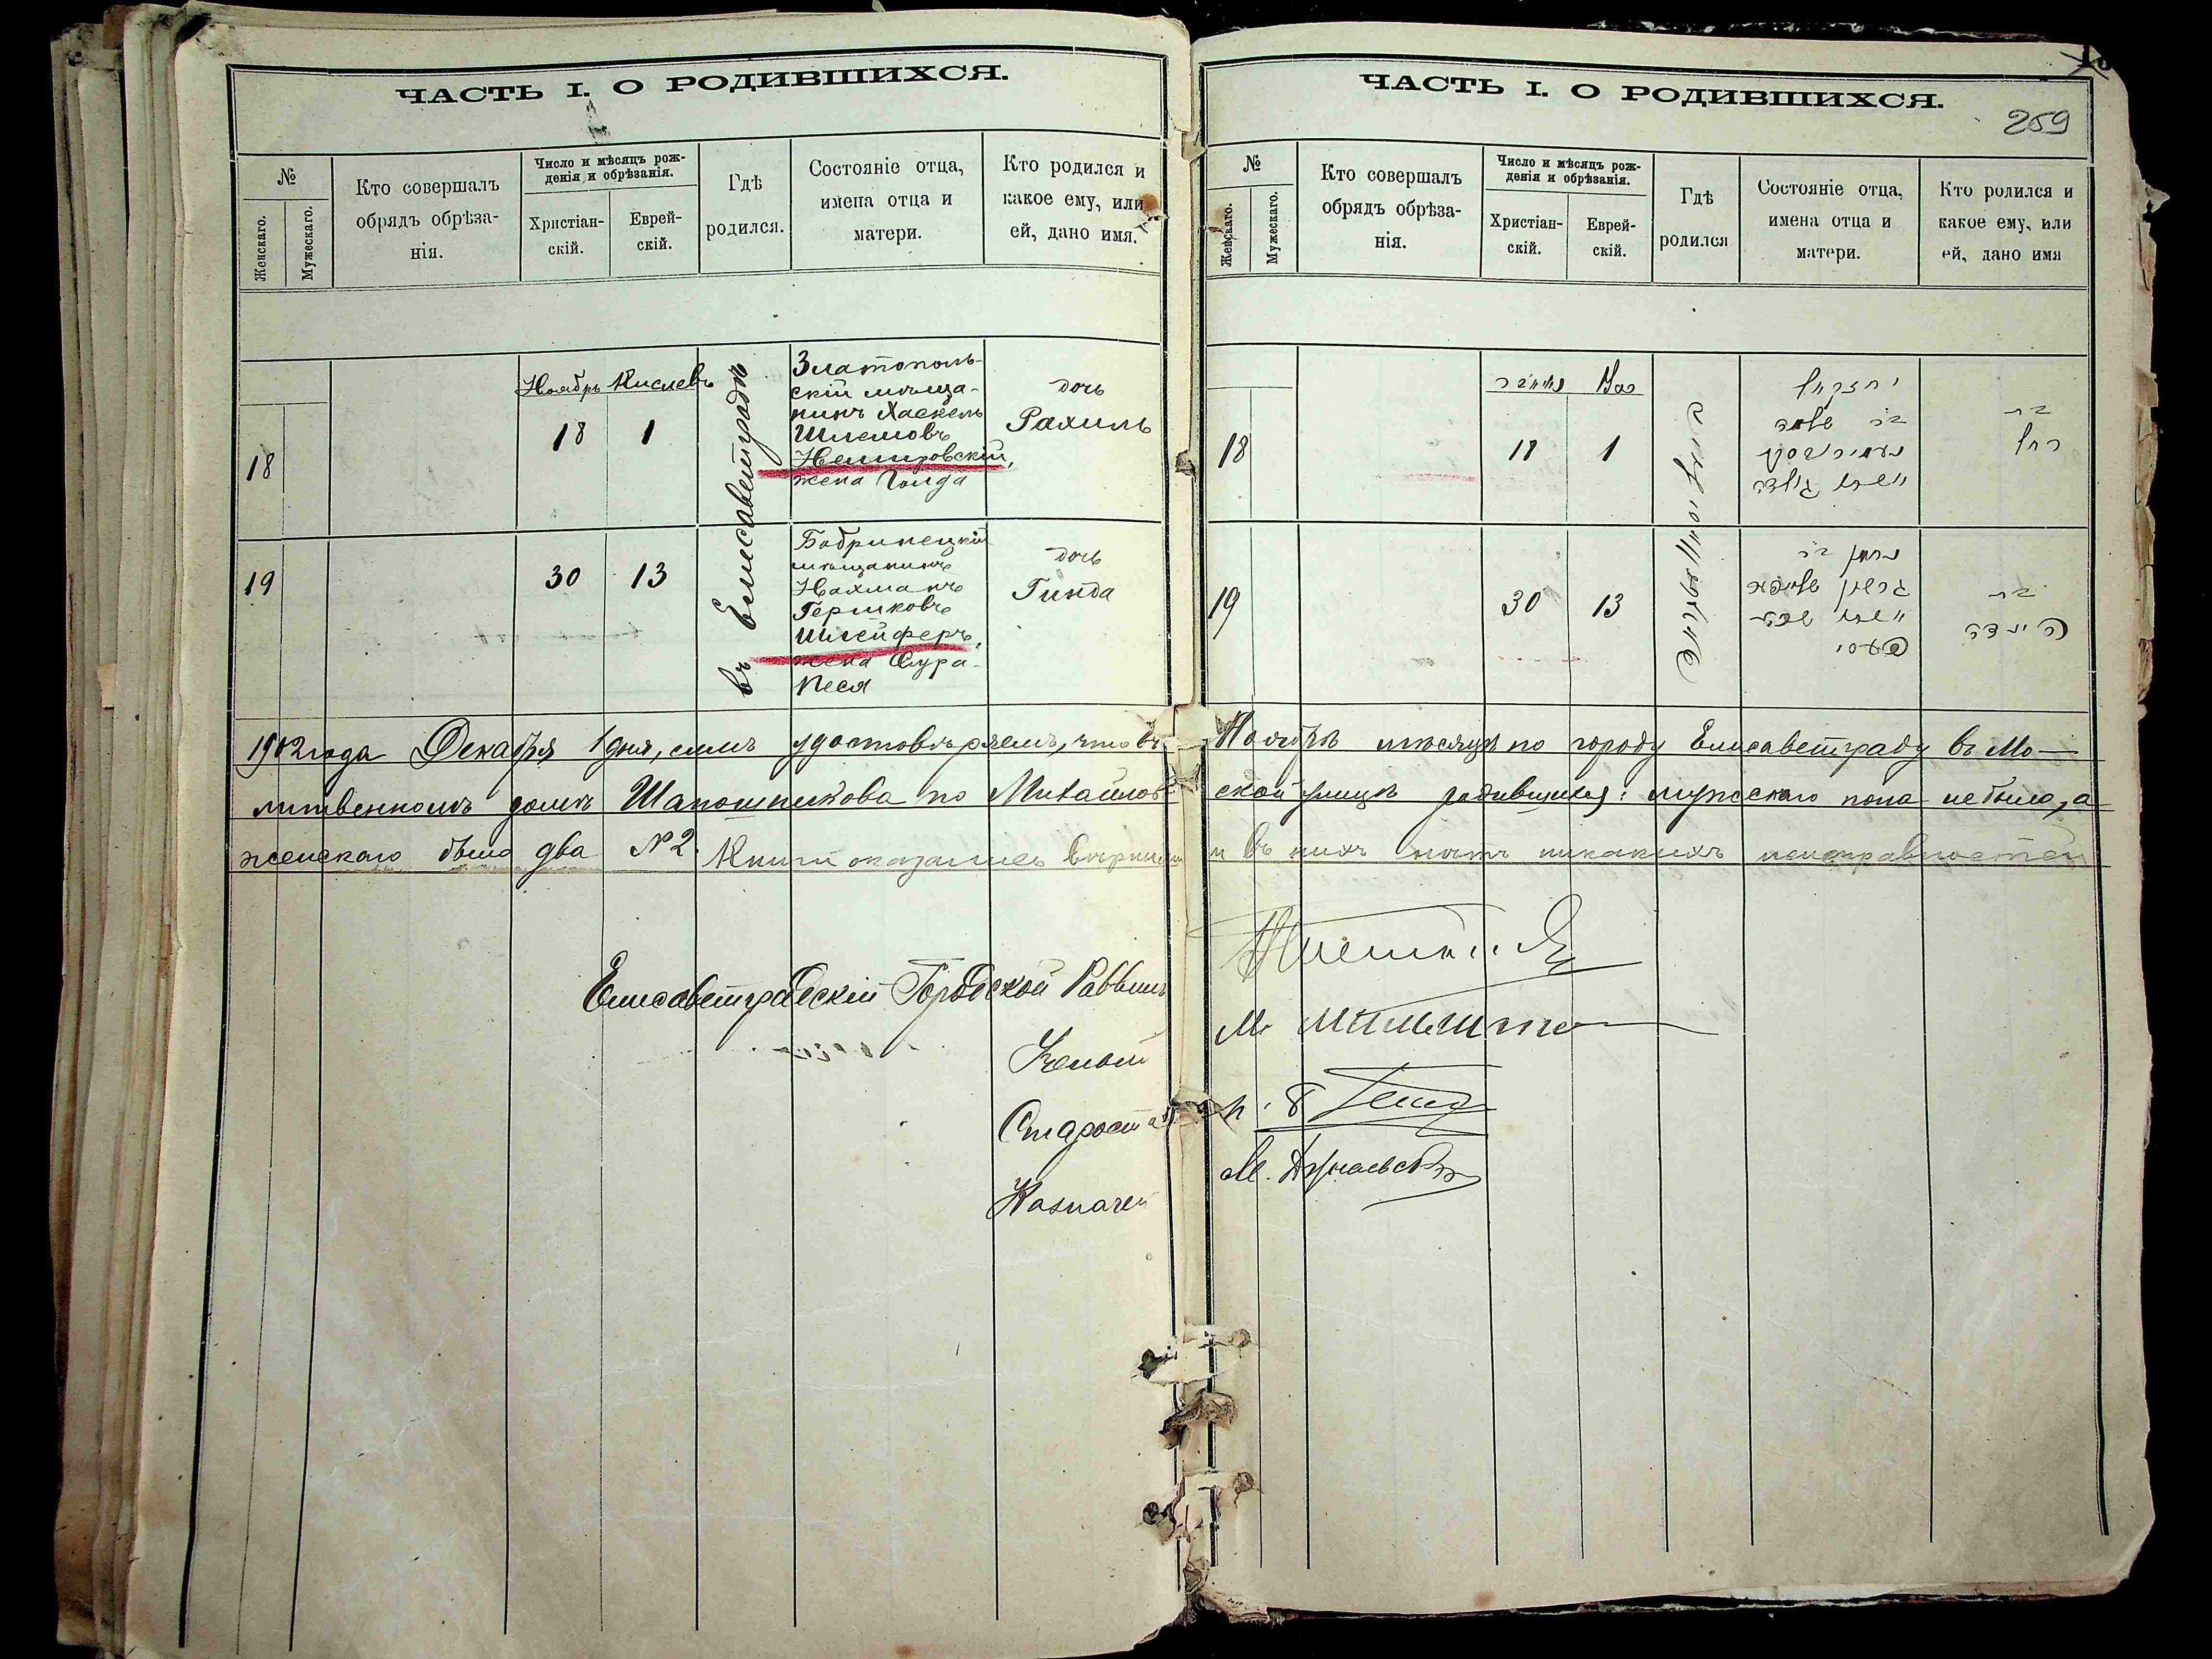 ЧАСТЬ I. О РОДИВШИХСЯ.
№
Женскаго.
Мужескаго.
Кто совершалъ
обрядъ обрѣза-
нія.
Число и мѣсяцъ рож-
денія и обрѣзанія.
Христіан-
скій.
Еврей-
скій.
Гдѣ
родился.
Состояніе отца,
имена отца и
матери.
Кто родился и
какое ему, или
ей, дано имя.
18
Ноябрь Кислевъ
18 1
въ Елисаветградѣ
Златополь-
скій мѣща-
нинъ Хаскель
Шлемовъ
Немировскій,
жена Голда
дочь
Рахиль
19
30 13
Бобринецкій
мѣщанинъ
Нахманъ
Гершковъ
Шлейферъ,
жена Сура-
Песя
дочь
Гинда
ЧАСТЬ I. О РОДИВШИХСЯ.
259
№
Женскаго.
Мужескаго.
Кто совершалъ
обрядъ обрѣза-
нія.
Число и мѣсяцъ рож-
денія и обрѣзанія.
Христіан-
скій.
Еврей-
скій.
Гдѣ
родился
Состояніе отца,
имена отца и
матери.
Кто родился и
какое ему, или
ей, дано имя
18
18 1
יחזקאל
בן שלמה
נעמיראווסקי
בת
רחל
19
30 13
נחמן בן
בת
1902 года Декабря 1 дня, симъ удостовѣряемъ, что въ Ноябрѣ мѣсяцѣ по городу Елисаветграду въ Мо-
литвенномъ домѣ Шапошникова по Михайлов-ской улицѣ родившихся: мужескаго пола не было, а
женскаго было два № 2. Книги оказались вѣрными и въ нихъ нѣтъ никакихъ неисправностей
Елисаветградскій Городской Раввинъ
Ученый
Староста
Казначей